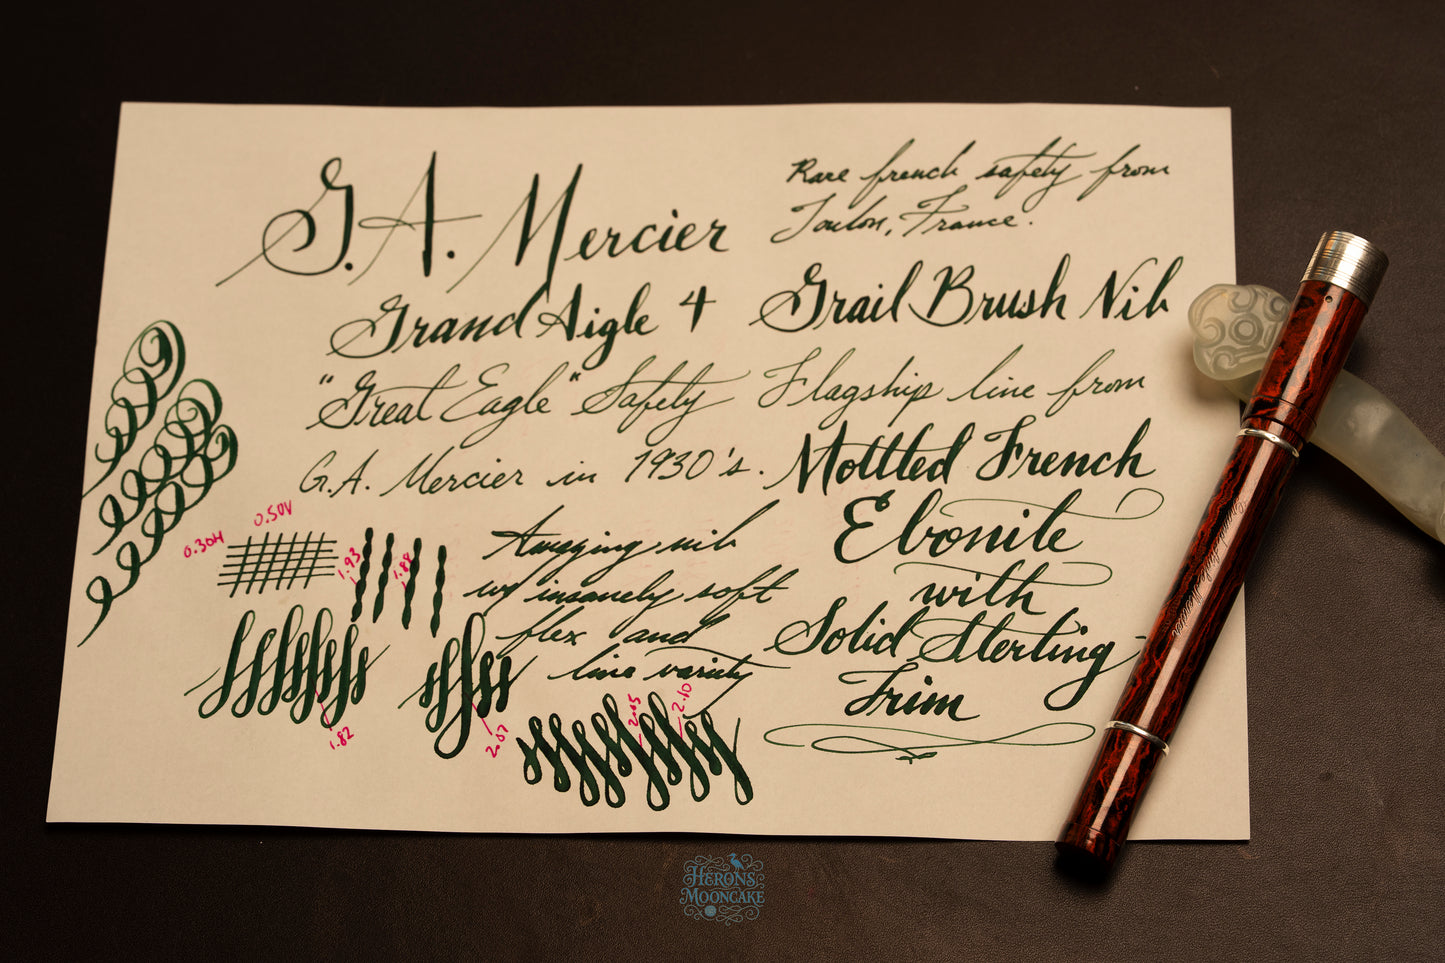 G.A. Mercier
Rare french safety from
Toulon, France.
Grand Aigle 4
Grail Brush Nib
"Great Eagle" Safety Flagship line from
G.A. Mercier in 1930's.
Mottled French
Ebonite
with
Solid Sterling
Trim
Amazing nib
w/ insanely soft
flex and
line variety
0.30H
0.50V
1.93
1.88
1.82
2.07
2.05
2.10
HERONS
MOONCAKE